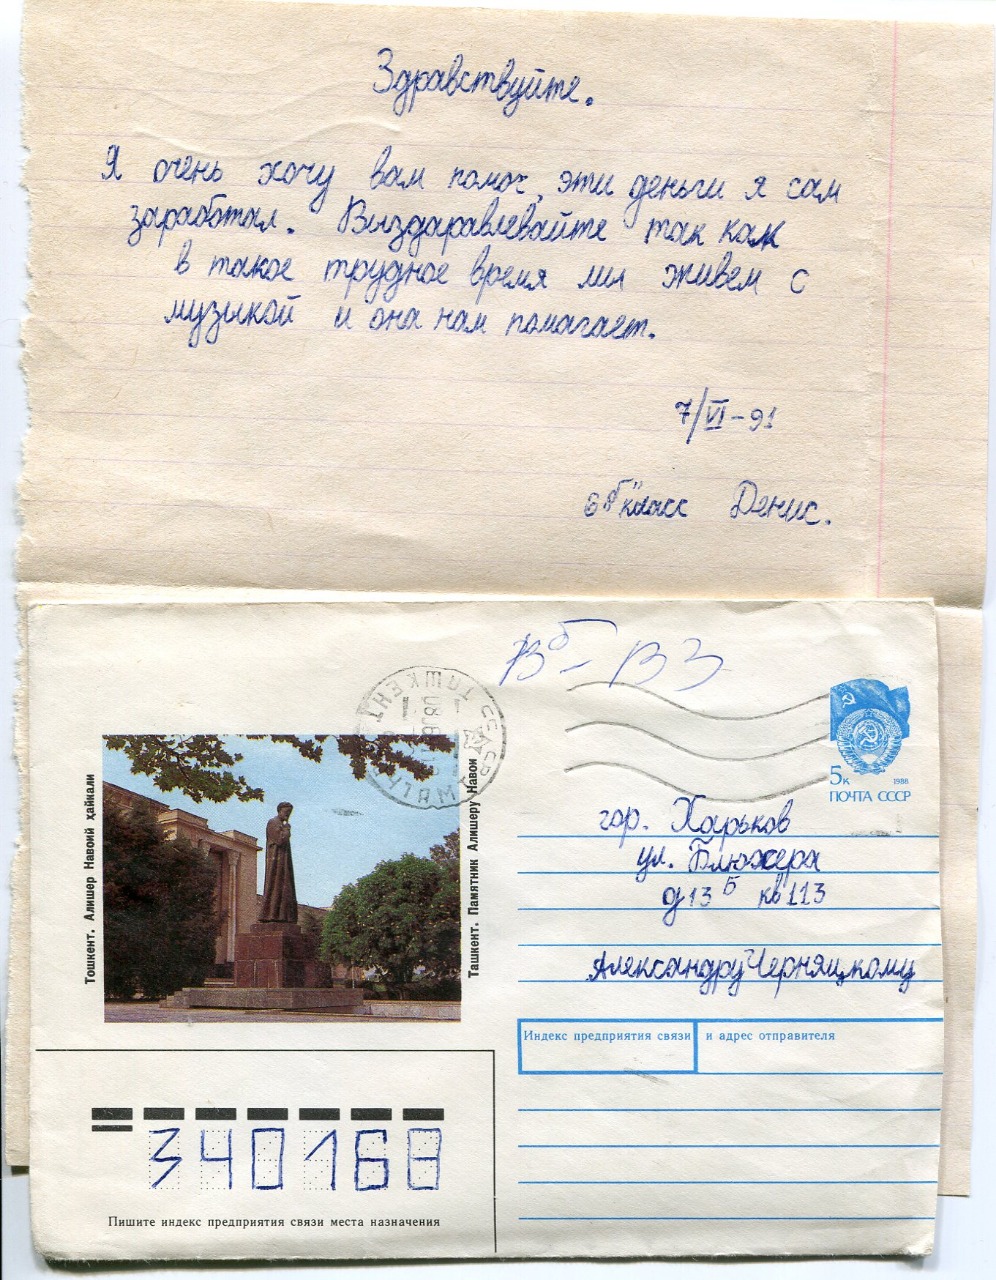 Здравствуйте.
Я очень хочу вам помоч, эти деньги я сам
заработал. Выздаравлевайте так как
в такое трудное время мы живем с
музыкой и она нам помагает.
7/VI-91
6 "б" класс Денис.
ТАШКЕНТ
5к
1988
ПОЧТА СССР
Тошкент. Алишер Навоий ҳайкали
Ташкент. Памятник Алишеру Навои
гор. Харьков
ул. Блюхера
д 13 Б кв 113
Александру Черняцкому
Индекс предприятия связи и адрес отправителя
340168
Пишите индекс предприятия связи места назначения